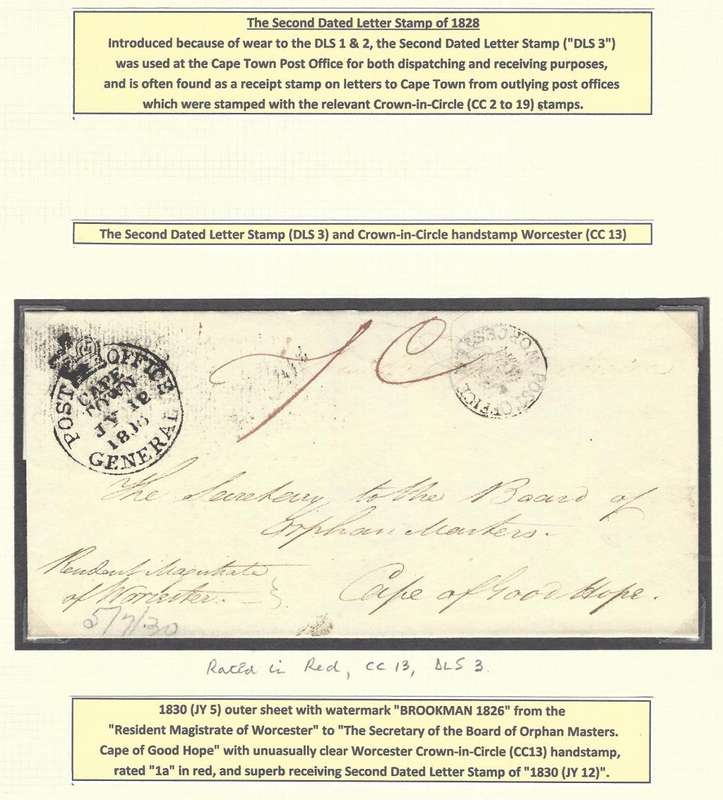 The Second Dated Letter Stamp of 1828
Introduced because of wear to the DLS 1 & 2, the Second Dated Letter Stamp ("DLS 3")
was used at the Cape Town Post Office for both dispatching and receiving purposes,
and is often found as a receipt stamp on letters to Cape Town from outlying post offices
which were stamped with the relevant Crown-in-Circle (CC 2 to 19) stamps.
The Second Dated Letter Stamp (DLS 3) and Crown-in-Circle handstamp Worcester (CC 13)
GENERAL POST OFFICE
CAPE
TOWN
JY 12
WORCESTER POST OFFICE
The Secretary to the Board of
Orphan Masters.
Resident Magistrate
of Worcester.
Cape of Good Hope.
5/7/30
Rated in Red, CC 13, DLS 3.
1830 (JY 5) outer sheet with watermark "BROOKMAN 1826" from the
"Resident Magistrate of Worcester" to "The Secretary of the Board of Orphan Masters.
Cape of Good Hope" with unusually clear Worcester Crown-in-Circle (CC13) handstamp,
rated "1a" in red, and superb receiving Second Dated Letter Stamp of "1830 (JY 12)".